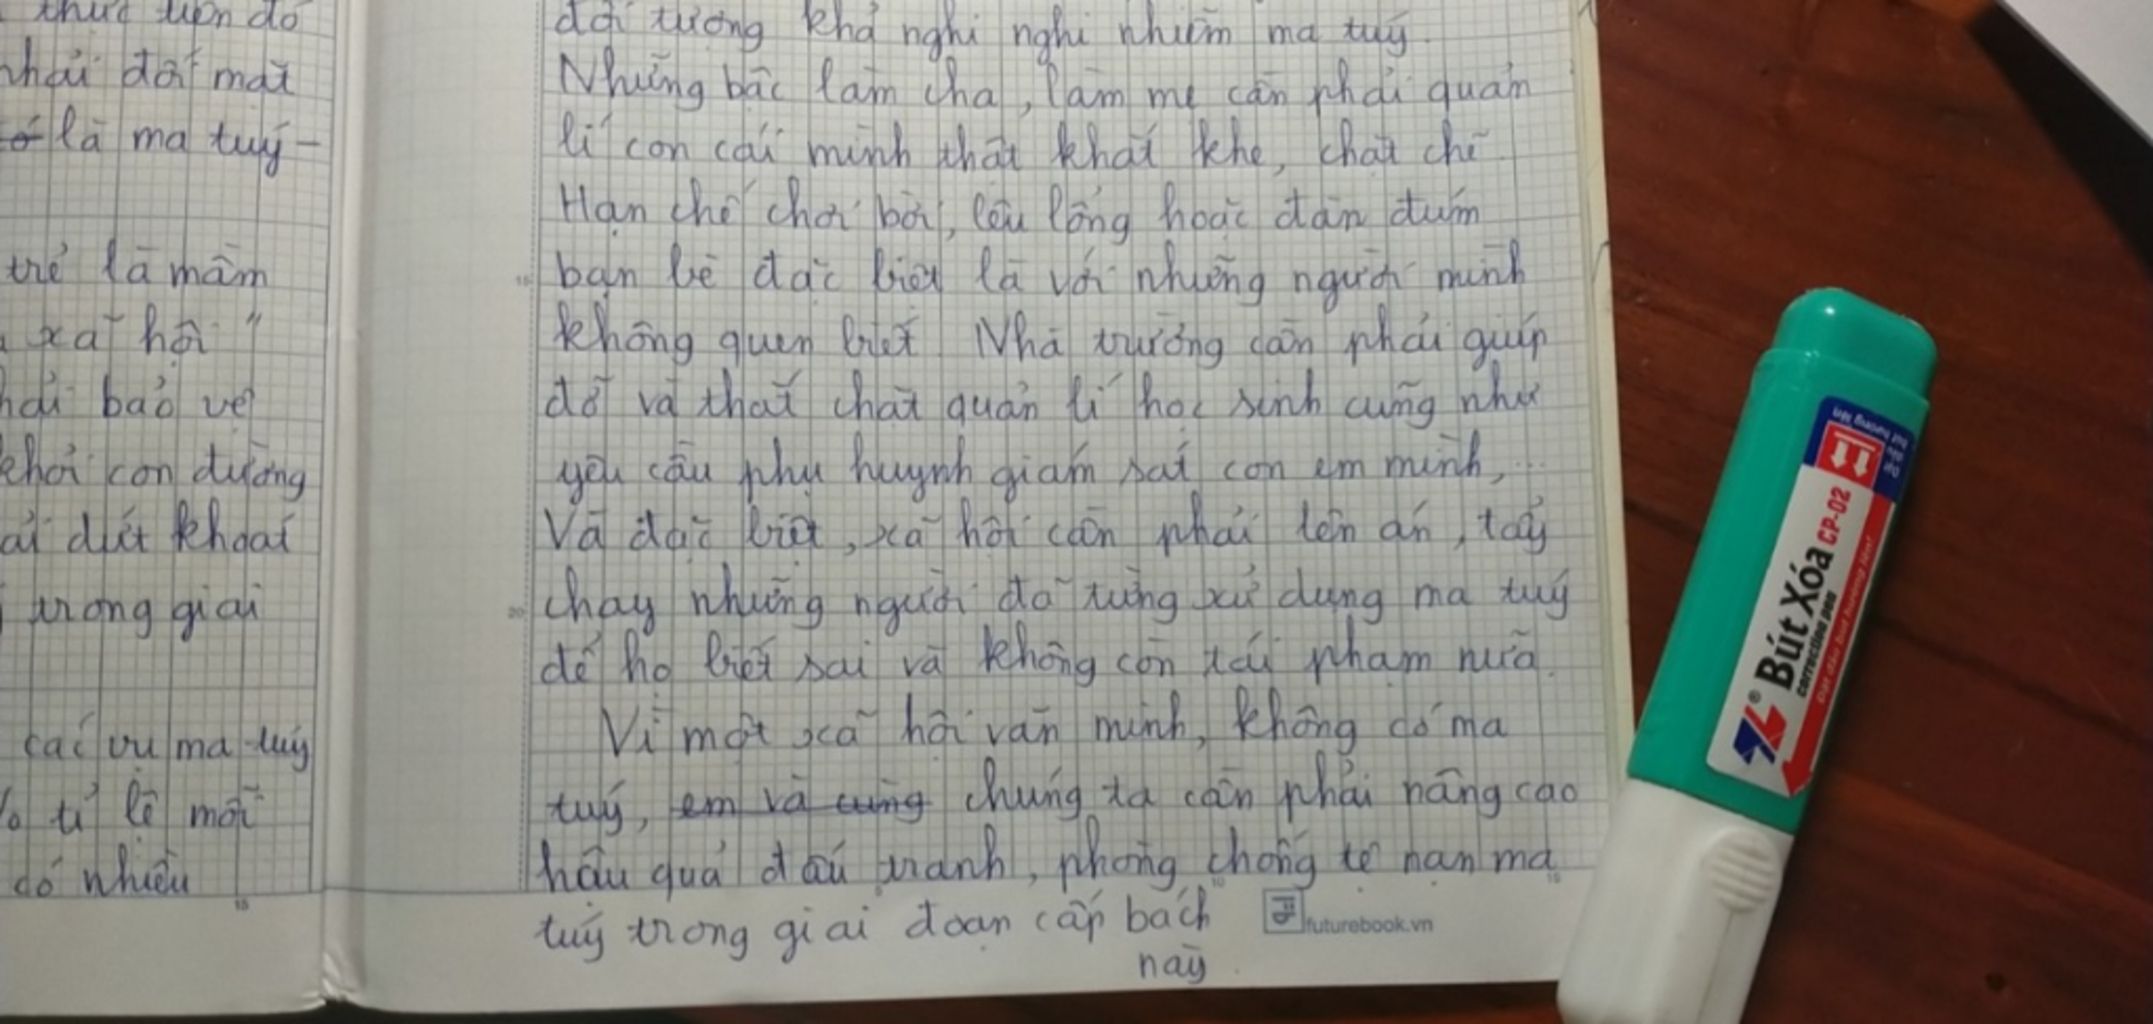 thực tiễn đó
phải đối mặt
là ma tuý -
trẻ là mầm
xã hội "
phải bảo vệ
khỏi con đường
dứt khoát
trong giai
các vụ ma tuý
tỉ lệ mỗi
có nhiều
đối tượng khả nghi nghi nhiễm ma tuý.
Những bậc làm cha, làm mẹ cần phải quản
lí con cái mình thật khắt khe, chặt chẽ.
Hạn chế chơi bời, lêu lổng hoặc đàn đúm
bạn bè đặc biệt là với những người mình
không quen biết. Nhà trường cần phải giúp
đỡ và thắt chặt quản lí học sinh cũng như
yêu cầu phụ huynh giám sát con em mình, ...
Và đặc biệt, xã hội cần phải lên án, tẩy
chay những người đã từng sử dụng ma tuý
để họ biết sai và không còn tái phạm nữa.
Vì một xã hội văn minh, không có ma
tuý, em và cùng chúng ta cần phải nâng cao
hậu quả đấu tranh, phòng chống tệ nạn ma
tuý trong giai đoạn cấp bách
này.
futurebook.vn
Bút Xóa CP-02
correction pen